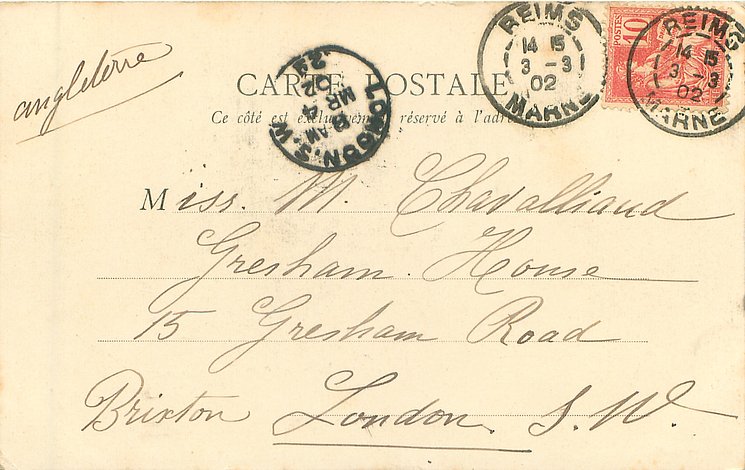 angleterre
CARTE POSTALE
Ce côté est exclusivement réservé à l'adresse
REIMS
14 15
3 - 3
02
MARNE
POSTES
10
REIMS
14 15
3 - 3
02
MARNE
LONDON. S.W
8 AM
MR 4
02
Miss. M. Chavalliaud
Gresham House
15 Gresham Road
Brixton London. S. W.